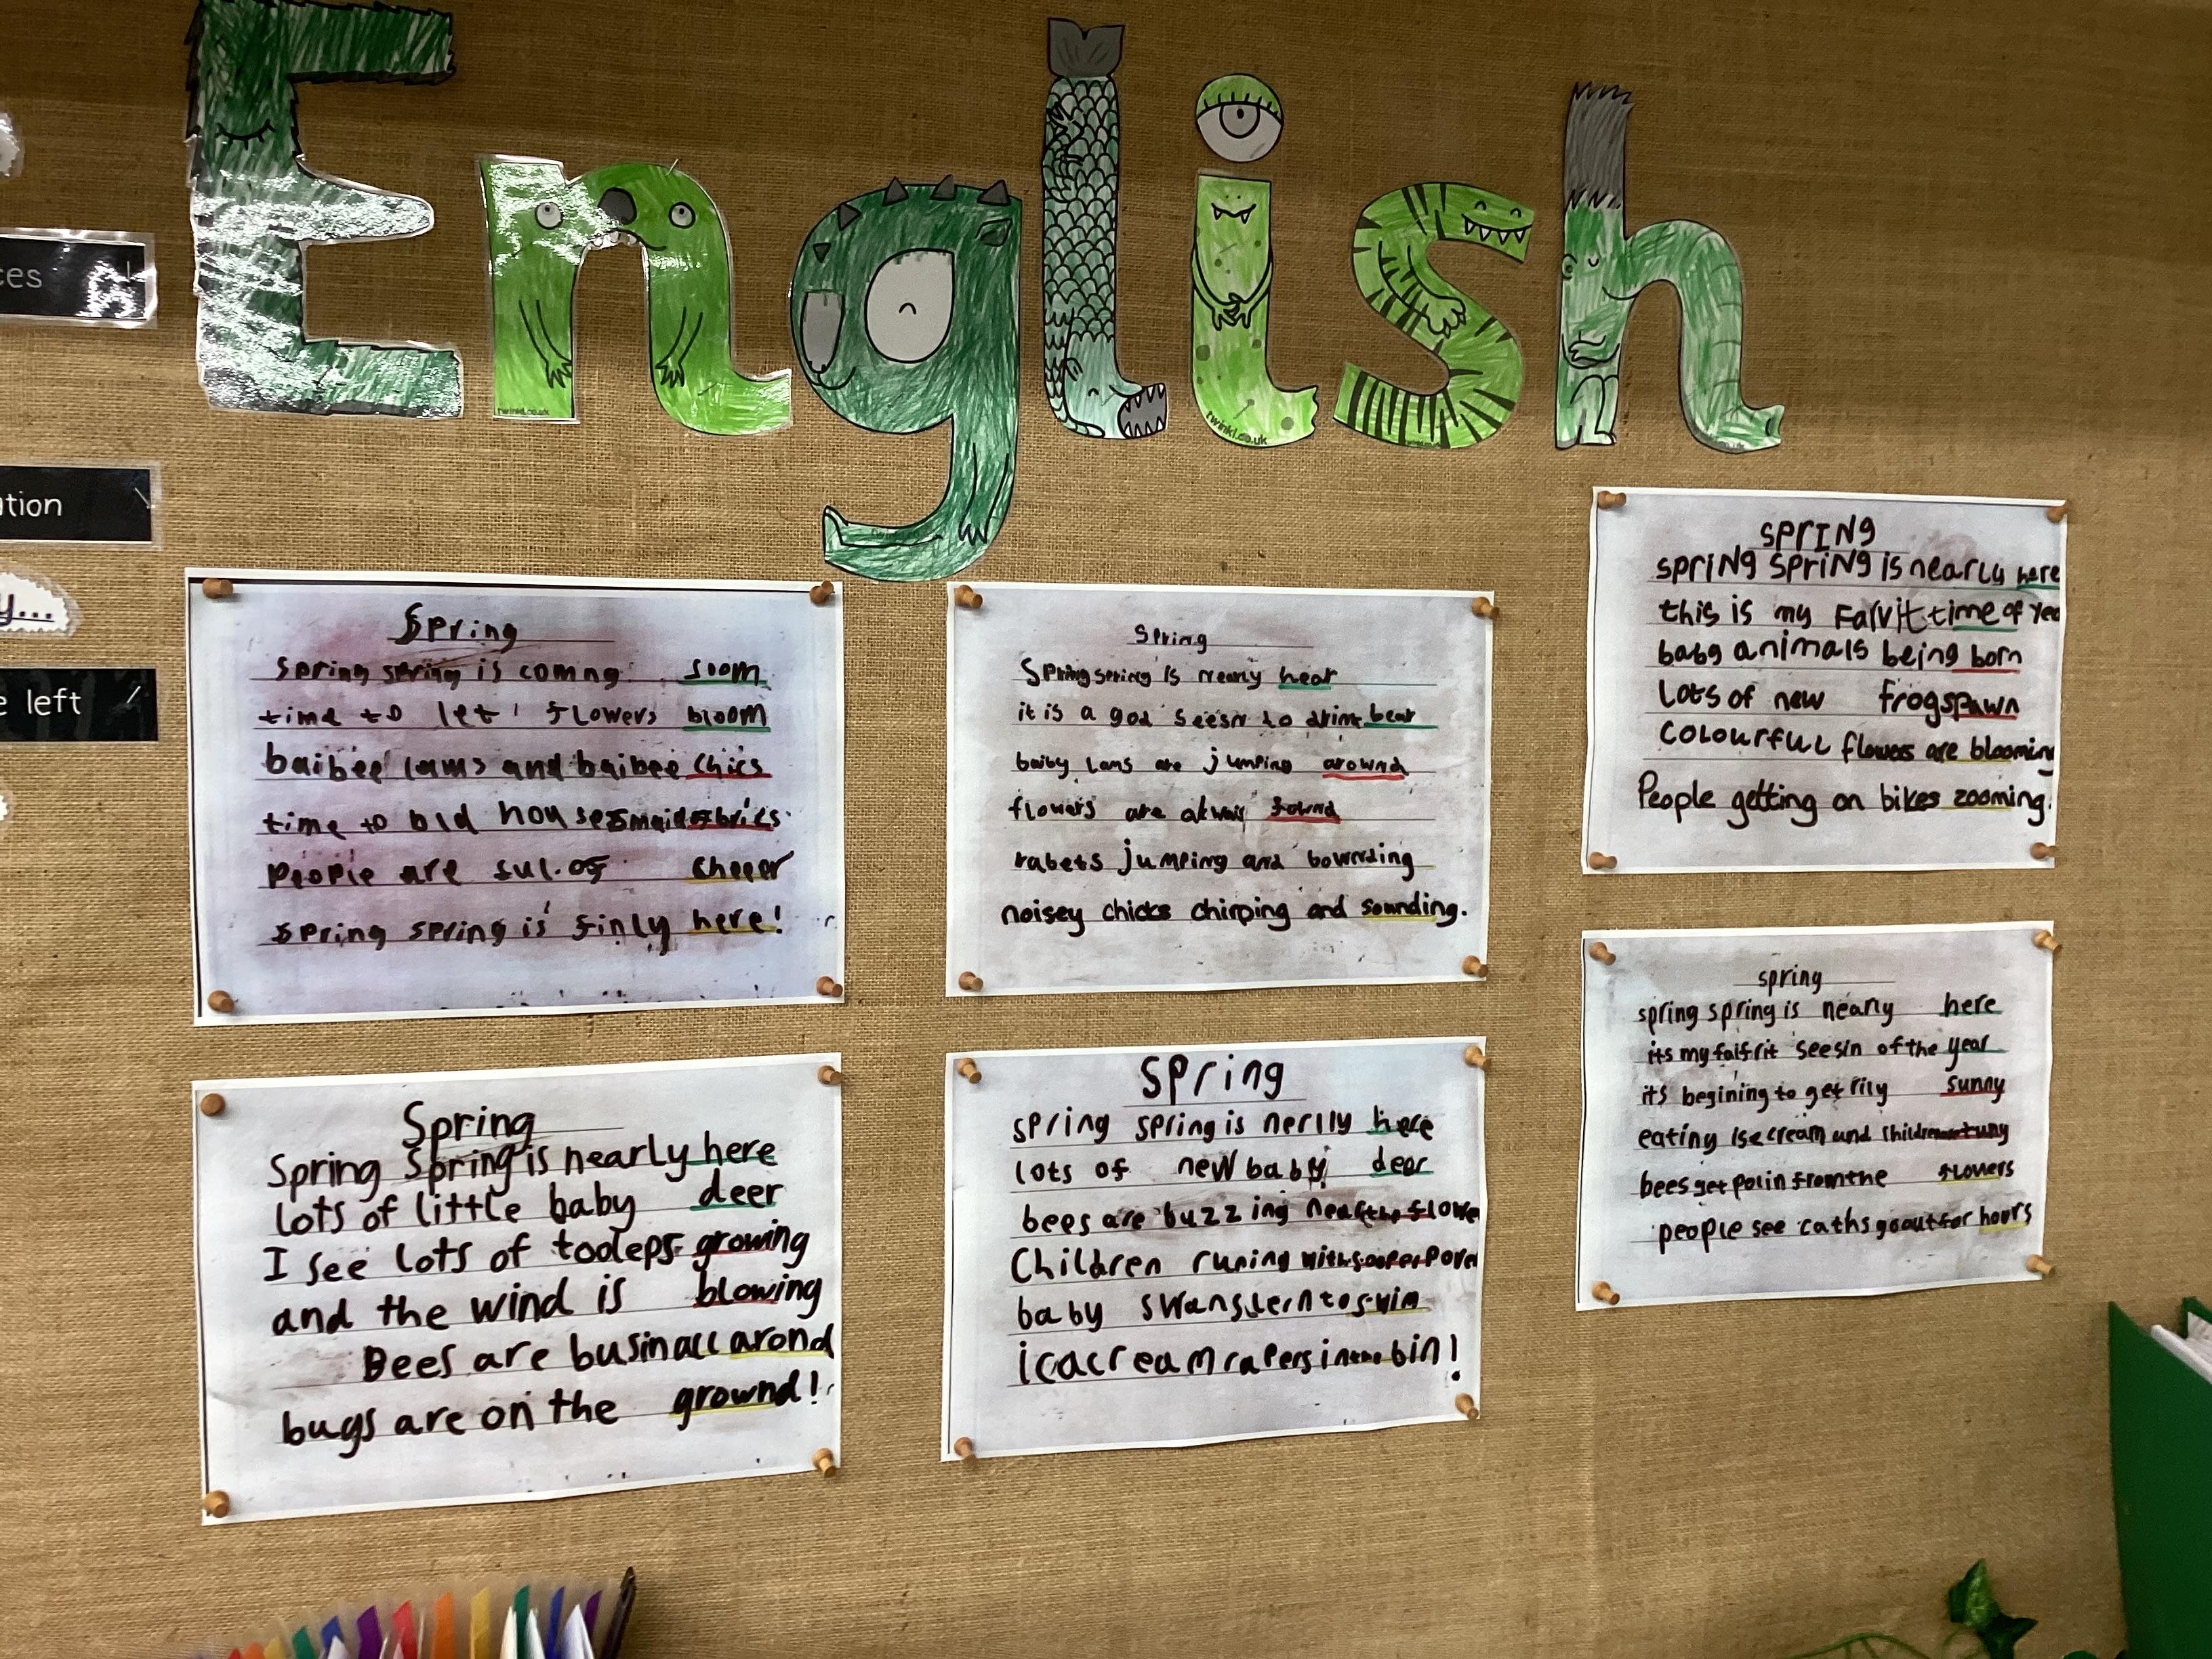 English
twinkl.co.uk
twinkl.co.uk
ces
ation
y...
e left
Spring
spring spring is comng soom
time to let flowers bloom
baibee lams and baibee chics
time to bld houses maid of brics
people are ful of cheeer
spring spring is finly here!
Spring
Spring spring is nearly hear
it is a god seesn to drink bear
baiby lams are jumping arownd
flowers are alwais fownd
rabets jumping and bownding
noisey chicks chirping and sounding.
SPRING
SPRING SPRING is nearly here
this is my Falvit time of yea
baby animals being born
lots of new frogspawn
Colourful flowers are blooming
People getting on bikes zooming.
Spring
Spring Spring is nearly here
lots of little baby deer
I see lots of tooleps growing
and the wind is blowing
Bees are busin all arond
bugs are on the grownd!
Spring
spring spring is nerlly here
lots of new baby deer
bees are buzzing near the flowe
Children runing with sooper power
baby swans lern to swim
icacream rapers in the bin!
spring
spring spring is nearly here
its my faifrit seesin of the year
its begining to get rily sunny
eating isecream and children
bees get polin from the flowers
people see caths go out for hours